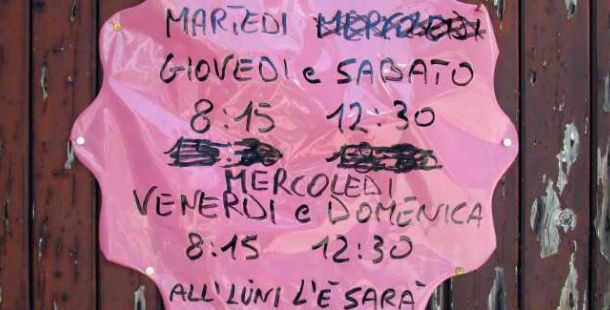 MARTEDI MERCOLEDI
GIOVEDI e SABATO
8:15 12:30
MERCOLEDI
VENERDI e DOMENICA
8:15 12:30
ALL' LUNI L'È SARÀ